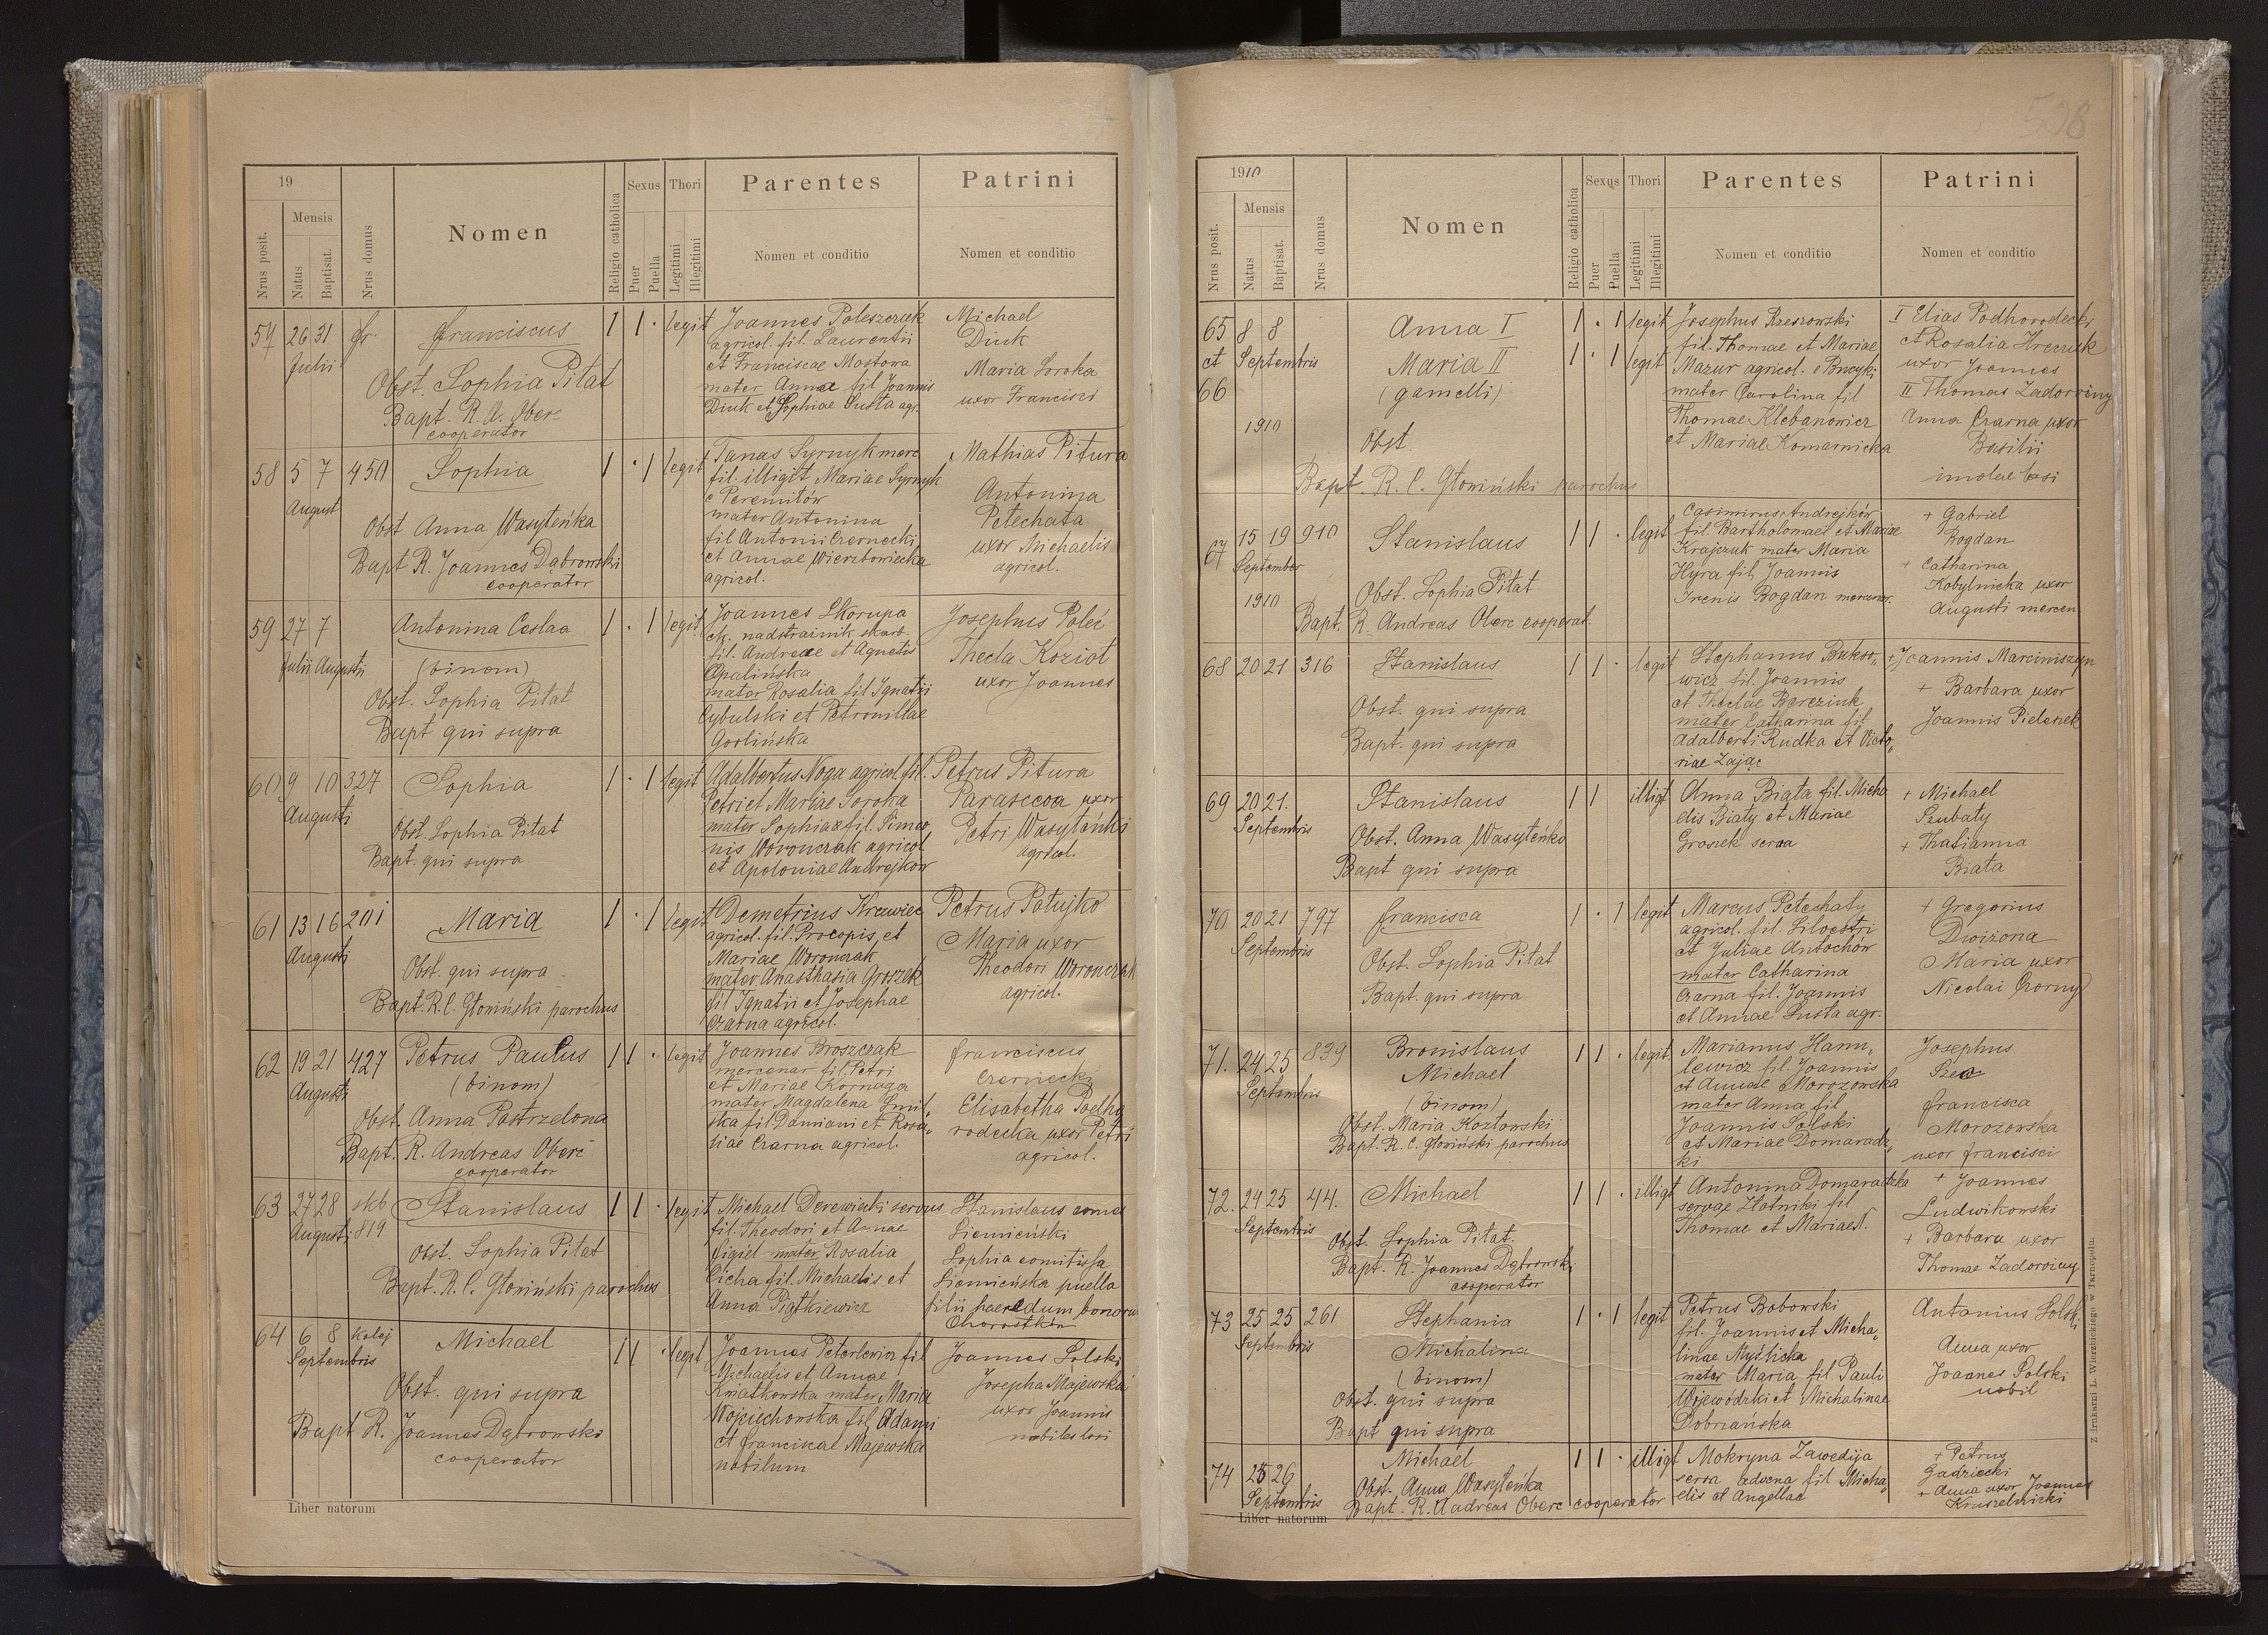 19
Nrus posit.
Mensis
Natus
Baptisat.
Nrus domus
Nomen
Religio catholica
Sexus
Puer
Puella
Thori
Legitimi
Illegitimi
Parentes
Nomen et conditio
Patrini
Nomen et conditio
57 26 31 fr. Franciscus 1 1 · legit
Julii
Obst. Sophia Pitat
Bapt. R. A. Oberc
cooperator
Joannes Poleszczuk
agricol. fil. Laurentii
et Franciscae Mostowa
mater Anna fil Joannis
Diuk et Sophiae Susta agr.
Michael
Diuk
Maria Soroka
uxor Francisci
58 5 7 450 Sophia 1 · 1 legit
August
Obst Anna Wasyleńka
Bapt R. Joannes Dąbrowski
cooperator
Tanas Syrnyk merc
fil. illigit Mariae Syrnyk
e Peremitów
mater Antonina
fil Antonii Czernecki
et Annae Wierzbowiecka
agricol.
Mathias Pitura
Antonina
Petechata
uxor Michaelis
agricol.
59 27 7 Antonina Ceslaa 1 · 1 legit
Julii Augusti
(binom)
Obst. Sophia Pitat
Bapt qui supra
Joannes Skorupa
ck. nadstrażnik skarb.
fil. Andreae et Agnetis
Opalińska
mater Rosalia fil Ignatii
Cybulski et Petronillae
Gorlińska
Josephus Poleć
Thecla Kozioł
uxor Joannes
60 9 10 327 Sophia 1 · 1 legit
Augusti
Obst. Sophia Pitat
Bapt. qui supra
Adalbertus Noga agricol. fil.
Petri et Mariae Soroka
mater Sophia fil. Simeo
nis Woronczak agricol
et Apoloniae Andrejków
Petrus Pitura
Parascea uxor
Petri Wasyleńki
agricol.
61 13 16 201 Maria 1 · 1 legit
Augusti
Obst. qui supra
Bapt. R. C. Głowiński parochus
Demetrius Krawiec
agricol. fil. Procopis et
Mariae Woronczak
mater Anasthasia Groszek
fil Ignatii et Josephae
Czarna agricol.
Petrus Połujko
Maria uxor
Theodori Woronczak
agricol.
62 19 21 427 Petrus Paulus 1 1 · legit
Augusti
(binom)
Obst. Anna Postrzelona
Bapt. R. Andreas Oberc
cooperator
Joannes Broszczak
mercenar fil Petri
et Mariae Kornaga
mater Magdalena Smil„
ska fil. Damiani et Rosa„
liae Czarna agricol.
Franciscus
Czernecki
Elisabetha Podho
rodecka uxor Petri
agricol.
63 27 28 skb Stanislaus 1 1 · legit
Augusti 819
Obst. Sophia Pitat
Bapt. R. C. Głowiński parochus
Michael Derewiecki servus
fil. Theodori et Annae
Figiel mater Rosalia
Cicha fil. Michaelis et
Anna Piątkiewicz
Stanislaus comes
Siemieński
Sophia comitissa
Siemieńska puella
filii haeredum bonorum
Chorostków
64 6 8 kolej Michael 1 1 · legit
Septembris
Obst. qui supra
Bapt R. Joannes Dąbrowski
cooperator
Joannes Peterlewicz fil
Michaelis et Annae
Kwiatkowska mater Maria
Wojciechowska fil. Adami
et Franciscae Majewska
nobilium
Joannes Solski
Josepha Majewska
uxor Joannis
nobiles loci
Liber natorum
508
1910
Nrus posit.
Mensis
Natus
Baptisat.
Nrus domus
Nomen
Religio catholica
Sexus
Puer
Puella
Thori
Legitimi
Illegitimi
Parentes
Nomen et conditio
Patrini
Nomen et conditio
65 8 8 Anna I 1 · 1 legit
et Septembris Maria II 1 · 1 legit
66 (gamelli)
1910
Obst.
Bapt. R. C. Głowiński parochus
Josephus Rzeszowski
fil. Thomae et Mariae
Mazur agricol. e
mater Carolina fil
Thomae Klebanowicz
et Mariae Komarnicka
I Elias Podhorodecki
et Rosalia Hreczuk
uxor Joannes
II Thomas Zadorożny
Anna Czarna uxor
Basilii
incolae loci
67 15 19 910 Stanislaus 1 1 · legit
September
1910
Obst. Sophia Pitat
Bapt. R. Andreas Oberc cooperat.
Casimirus Andrejków
fil. Bartholomaei et Mariae
Krajczuk mater Maria
Hyra fil Joannis
Irenis Bogdan mercenar.
+ Gabriel
Bogdan
+ Catharina
Kobylnicka uxor
Augusti mercen
68 20 21 316 Stanislaus 1 1 · legit
Obst. qui supra
Bapt. qui supra
Stephanus Bukso„
wicz fil. Joannis
et Theclae Bereziuk
mater Catharina fil
Adalberti Rudka et Victo„
riae Zając
+ Joannis Marciniszyn
+ Barbara uxor
Joannis Pielenek
69 20 21. Stanislaus 1 1 illigt
Septembris
Obst. Anna Wasyleńka
Bapt qui supra
Anna Biała fil. Micha
elis Biały et Mariae
Groszek serva
+ Michael
Szubaty
+ Thatianna
Biała
70 20 21 797 Francisca 1 · 1 legit
Septembris
Obst. Sophia Pitat
Bapt. qui supra
Marcus Petechaty
agricol. fil. Silvestri
et Juliae Antochów
mater Catharina
Czarna fil. Joannis
et Annae Susta agr.
+ Gregorius
Dwiżona
Maria uxor
Nicolai Czorny
71. 24 25 839 Bronislaus 1 1 · legit.
Septembris Michael
(binom)
Obst. Maria Kozłowski
Bapt. R. C. Głowiński parochus
Marianus Hanu„
lewicz fil. Joannis
et Annae Morozowska
mater Anna fil
Joannis Solski
et Mariae Domaradz„
ki
Josephus
Francisca
Morozowska
uxor Francisci
72. 24 25 44. Michael 1 1 · illigt
Septembris
Obst. Sophia Pitat.
Bapt. R. Joannes Dąbrowski
cooperator
Antonina Domaradzka
servae Złotniki fil
Thomae et Mariae N.
+ Joannes
Ludwikowski
+ Barbara uxor
Thomae Zadorożny
73 25 25 261 Stephania 1 · 1 legit
Septembris Michalina
(binom)
Obst. qui supra
Bapt qui supra
Petrus Bobowski
fil. Joannis et Micha„
linae Myślicka
mater Maria fil Pauli
Wojewódzki et Michalinae
Dobrzańska
Antonius Solski
Anna uxor
Joannes Polski
nobil
74 25 26 Michael 1 1 · illigt
Septembris
Obst. Anna Wasyleńka
Bapt. R. Andreas Oberc cooperator
Mokryna Zawedija
serva advena fil Micha„
elis et Angellae
+ Petrus
Gadziecki
+ Anna uxor Joannes
Kruszelnicki
Liber natorum
Z drukarni L. Wierzbickiego w Tarnopolu.